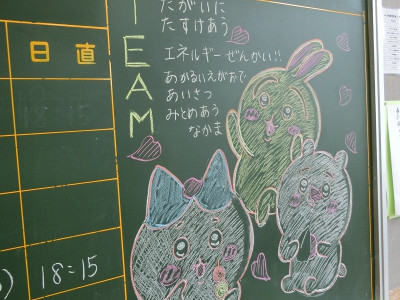 日直
TEAM
たがいに
たすけあう
エネルギーぜんかい!!
あかるいえがおで
あいさつ
みとめあう
なかま
18=15